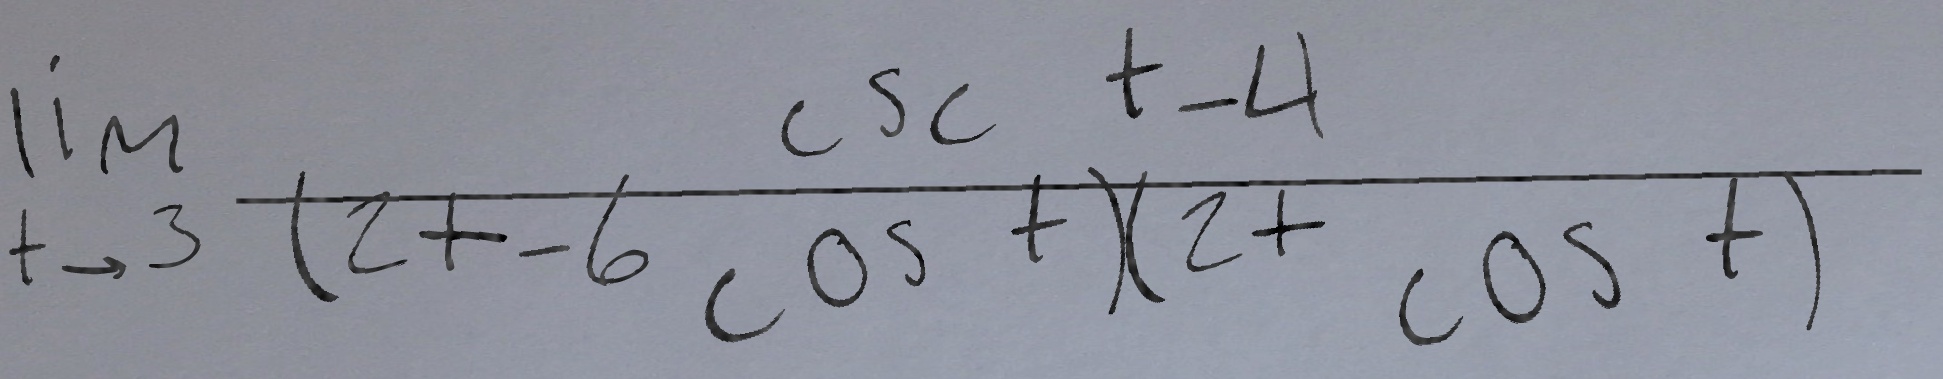 lim t→3 \frac{csc t-4}{(2t-6 cos t)(2t cos t)}